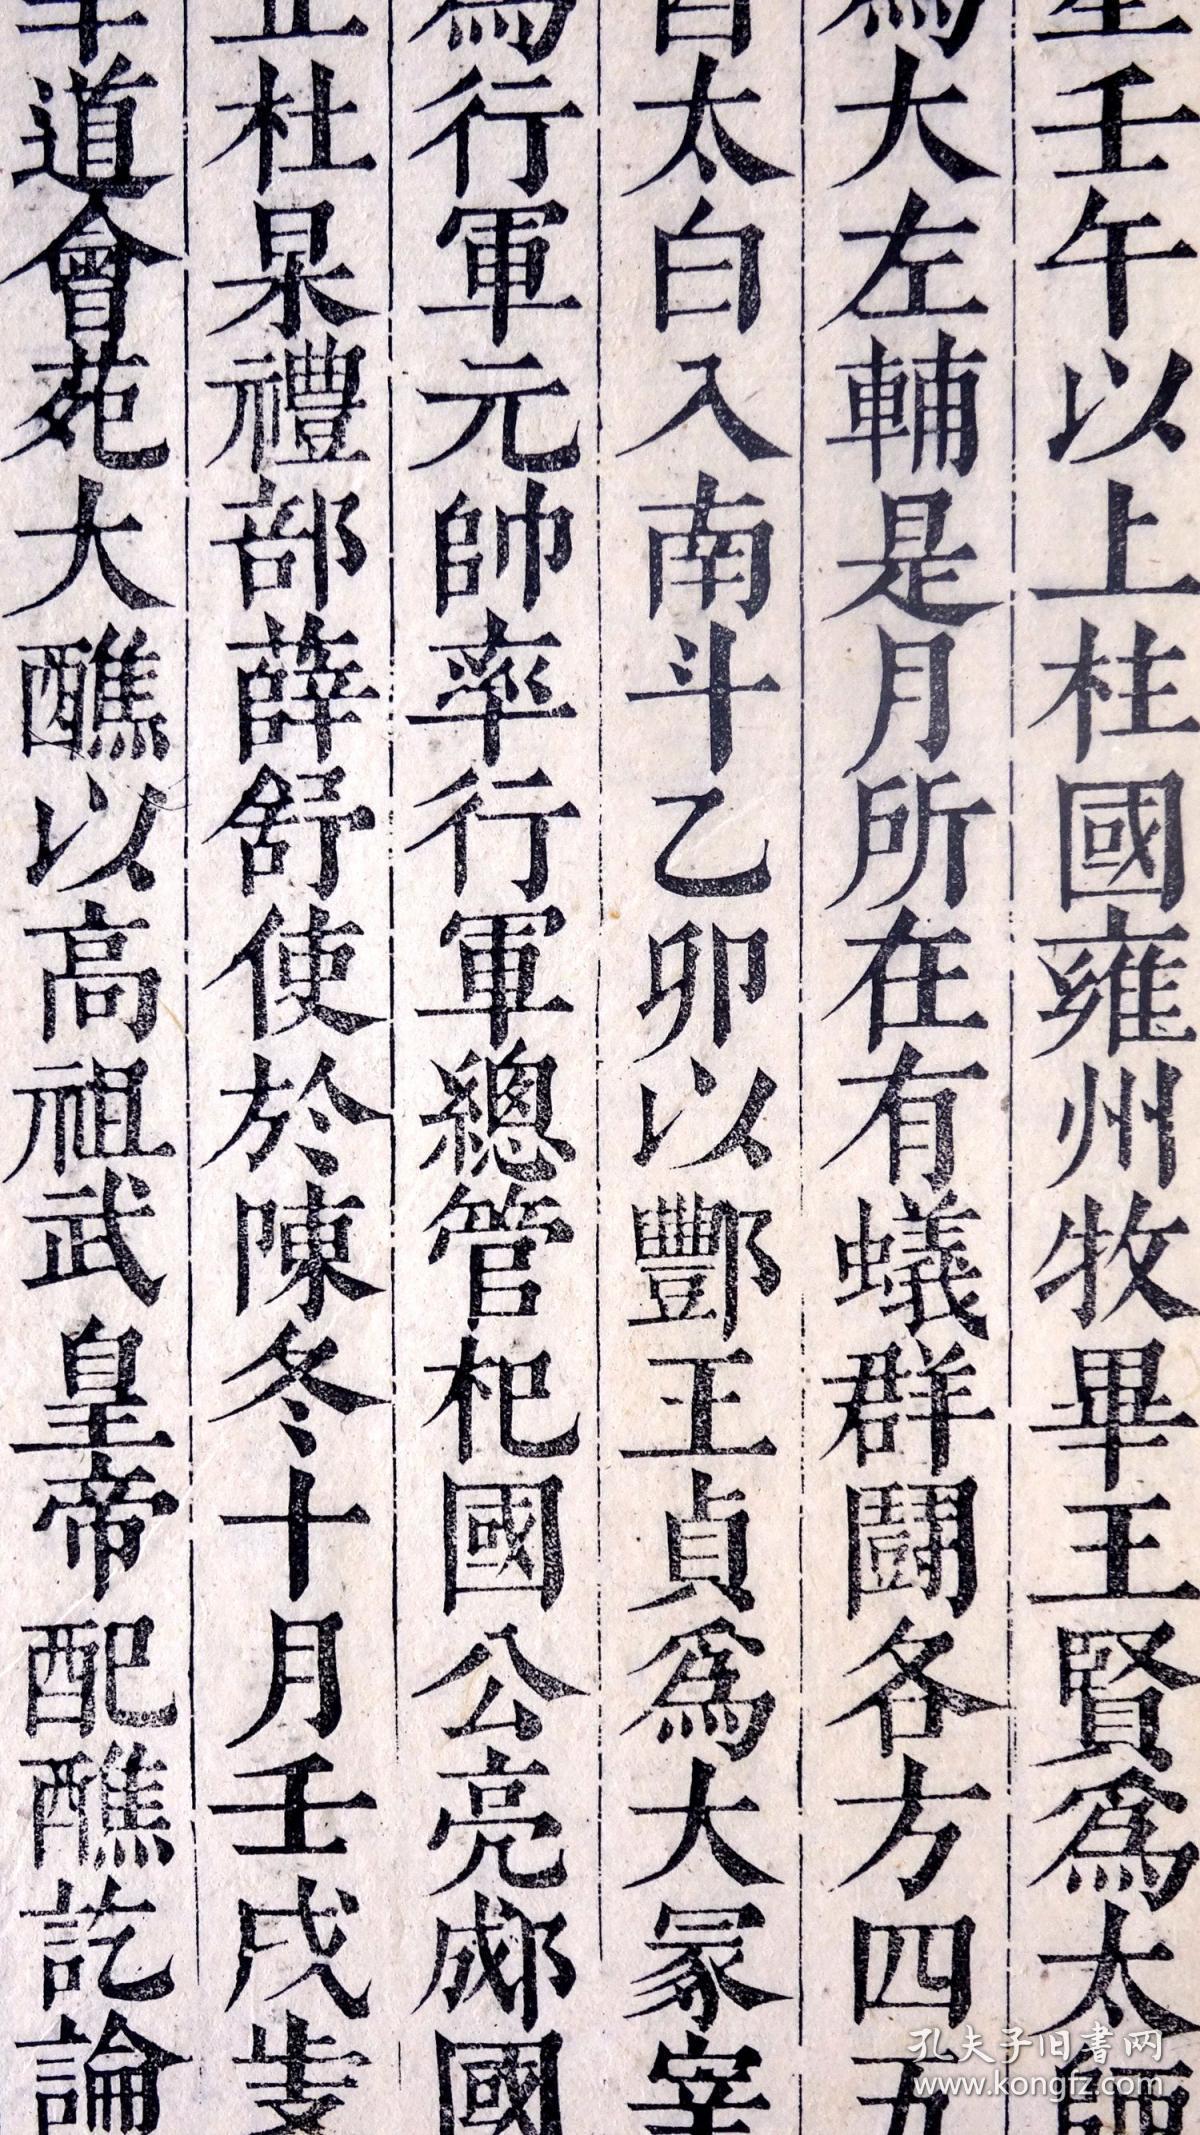 壬午以上柱國雍州牧畢王賢爲太師
爲大左輔是月所在有蟻群鬪各方四五
太白入南斗乙卯以酆王貞爲大冡宰
爲行軍元帥率行軍總管杞國公亮郕國
正杜杲禮部薛舒使於陳冬十月壬戌
道會苑大醮以高祖武皇帝配醮訖論
孔夫子旧書网
www.kongfz.com